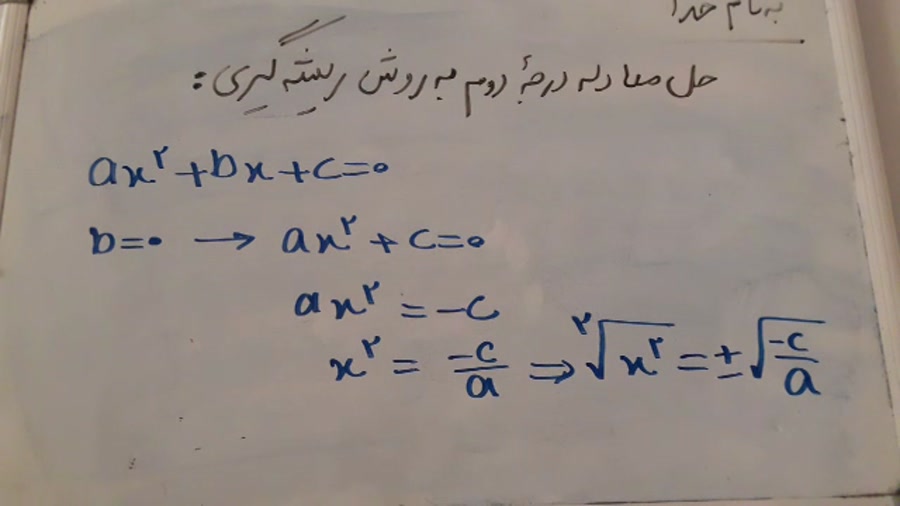 به نام خدا
حل معادله درجهٔ دوم به روش ریشه گیری:
ax²+bx+c=۰
b=۰ → ax²+c=۰
ax²=-c
x²=-c/a ⇒ ²√x²=±√-c/a